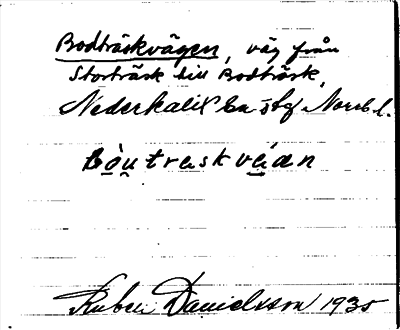 Bodträskvägen, väg från
Storträsk till Bodträsk,
Nederkalix la stg Norrb. l.
Bòutreskvéaen
Ruben Danielsson 1935